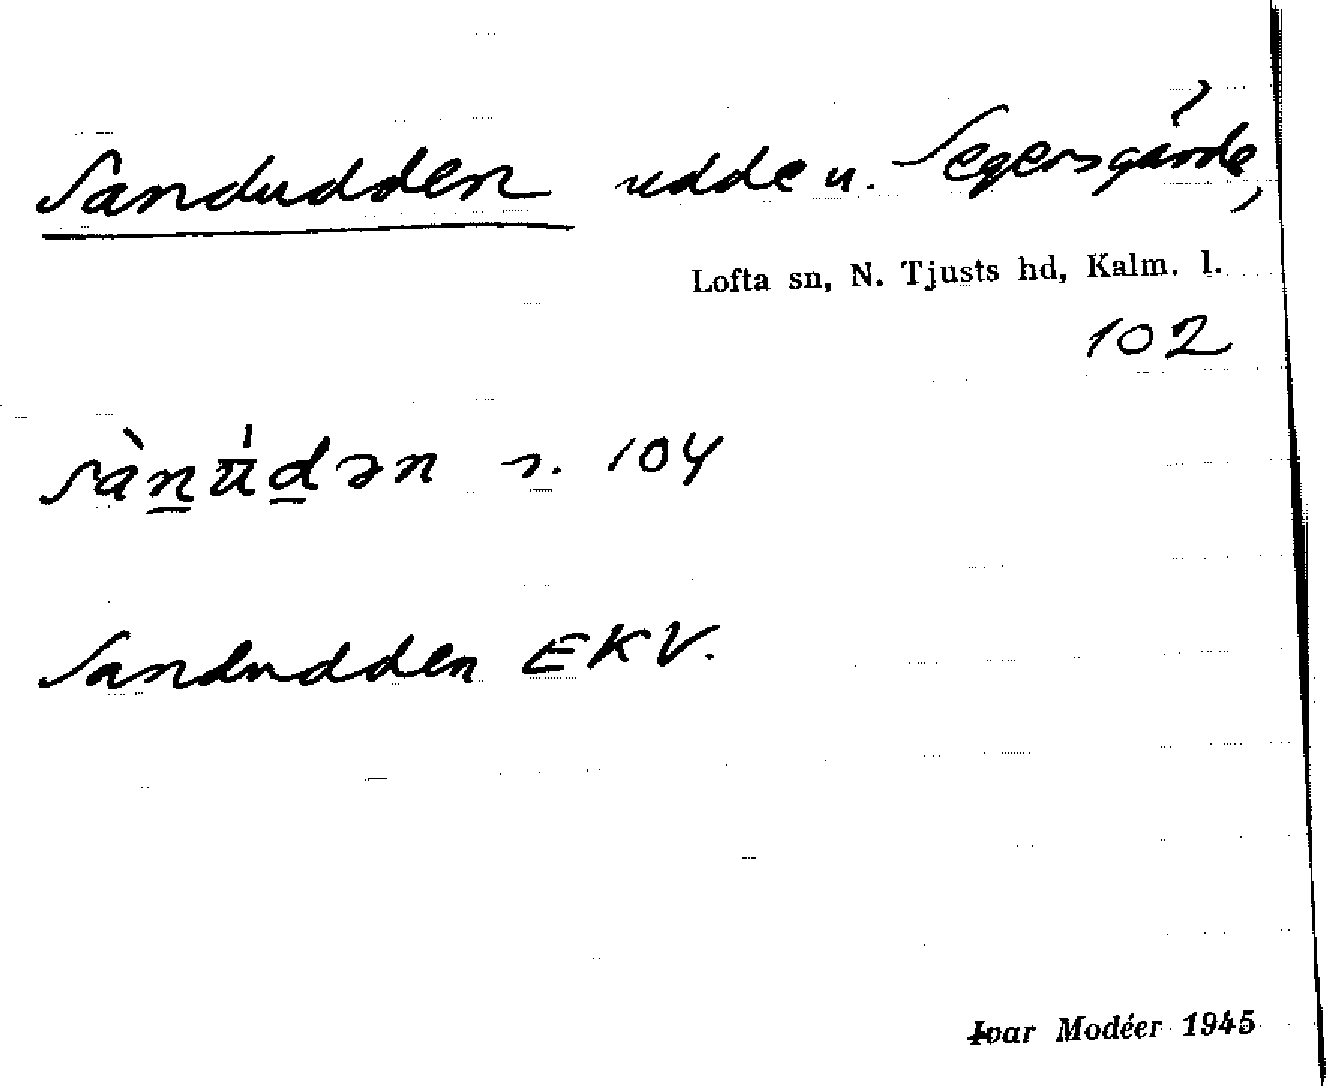 Sandudden udde u. Segersgärde,
Lofta sn, N. Tjusts hd, Kalm. l.
102
sàn̲ǘd̲ən s. 104
Sandudden EKV.
Ivar Modéer 1945